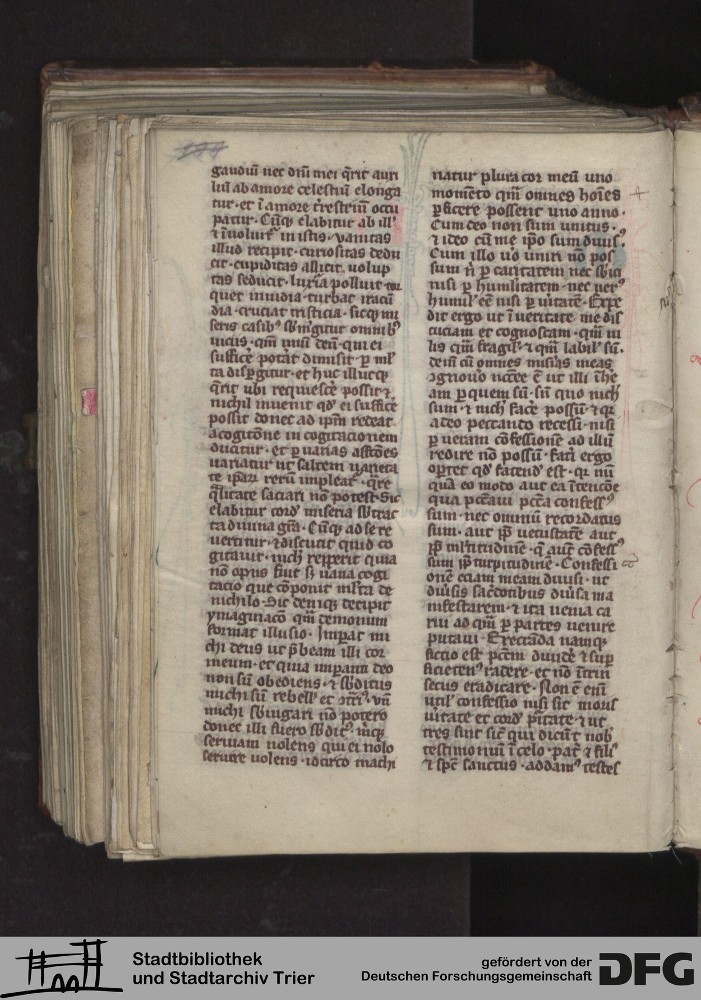 gaudiū nec diu mei q̄rit auxi
liū ab amore celestiū elonga
tur · et ī amore t̄restriū occu
patur · Cūq; elabitur ab ill'
⁊ īvoluit̄ in istis · vanitas
illud recipit · curiositas dedu
cit · cupiditas allicit · volup
tas seducit · luxīa polluit · tor
quet inuidia · turbat iracū
dia · cruciat tristicia · sicq; mi
seris casib⁹ sb̄mgitur omnib⁹
vicijs · qm̄ unū deū · qui ei
suffice potāt dimisit · p ml'
ta disp̄gitur · et huc illucq;
q̄rit ubi requiesce possit · ⁊
nichil inuenit qd' ei suffice
possit donec ad ip̄m redeat ·
a cogitōne in cogitacionem
ducitur · et p uarias affcōes
uariatur ut saltem uarieta
te ip̄ar rerū impleat̄ · q̄ re
q̄litate saciari nō potest · Sic
elabitur cord' miseria sb̄trac
ta diuina grā · Cūq; ad se re
uertitur · ⁊ discutit quid co
gitauit · nichil repperit quia
nō opus fuit sz uana cogi
tacio que cōponit ml'ta de
nichilo · Sic deniq; decipit
ymaginacō qm̄ demonum
format illusio · Imp̄at mi
chi deus ut p̄beam illi cor
meum · et quia imp̄anti deo
non sū obediens · ⁊ sb̄ditus
michi sū rebell' et ꝯtri⁹ · vn̄
michi sb̄iugari nō potero
donec illi fuero sb̄dit⁹ · mq;
seruiam nolens qui ei nolo
seruire uolens · idcirco machi
natur plura cor meū uno
momēto qm̄ omnes hoīes
pficere possent uno anno ·
Cum deo non sum unitus ·
⁊ ideo cū me ip̄o sum diuis⁹ ·
Cum illo uo uniri nō pos
sum n̄ p caritatem nec sb̄ici
nisi p humilitatem · nec uer⁹
humil' eē nisi p uitatē · Expe
dit ergo ut ī ueritate me dis
cuciam et cognoscam · qm̄ vi
lis qm̄ fragil' ⁊ qm̄ labil' sū ·
dein cū omnes misias meas
ꝯgnouo necc̄e ē ut illi īhe
am p quem sū · sn̄ quo nich'
sum · ⁊ nich' face possū · ⁊ q̄
a deo peccando recessi · nisi
p ueram cōfessionē ad illū
redire nō possū · Fat̄i ergo
oportet qd' fatend' est · q̄ nū
quā eo modo aut ea ītencōe
qua pctāui pctā confess⁹
sum · nec omniū recordatus
sum · aut pp̄ uetustatē aut
pp̄ ml'titudinē · q̄ aut cōfess⁹
sum pp̄ turpitudinē · Confessi
onē eciam meam diuisi · ut
diūsis sacdotibus diūsa ma
nifestarem · ⁊ ita uenia ca
rui ad qm̄ p partes uenire
putaui · Execranda namq;
fictio est pctm̄ diuide ⁊ sup
ficietenꝰ radere · et nō ītrin
secus eradicare · Non ē enī
util' confessio nisi sit in ous
uitate et cord' pitate · ⁊ ut
tres sint sic̄ qui dicūt nob'
testimoniū ī celo · pat̄ ⁊ fili⁹
⁊ spc̄ sanctus · addam⁹ testes
Stadtbibliothek
und Stadtarchiv Trier
gefördert von der
Deutschen Forschungsgemeinschaft
DFG